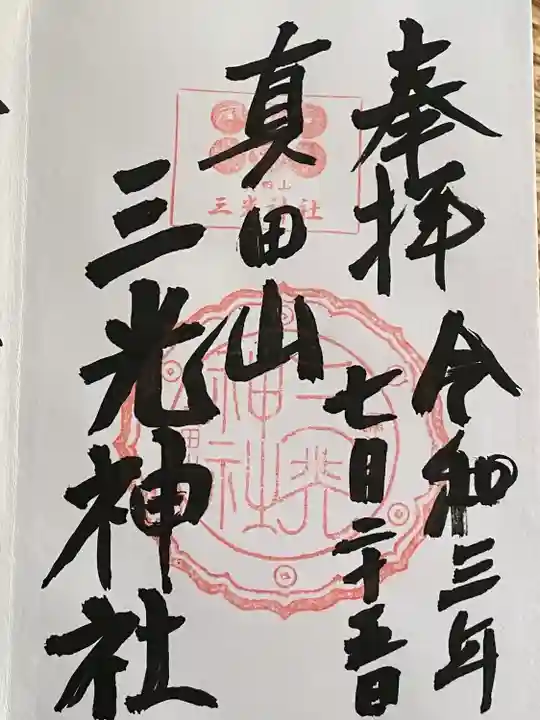 奉拝
令和三年
七月二十五日
真田山
三光神社
三光神社
三光
神社